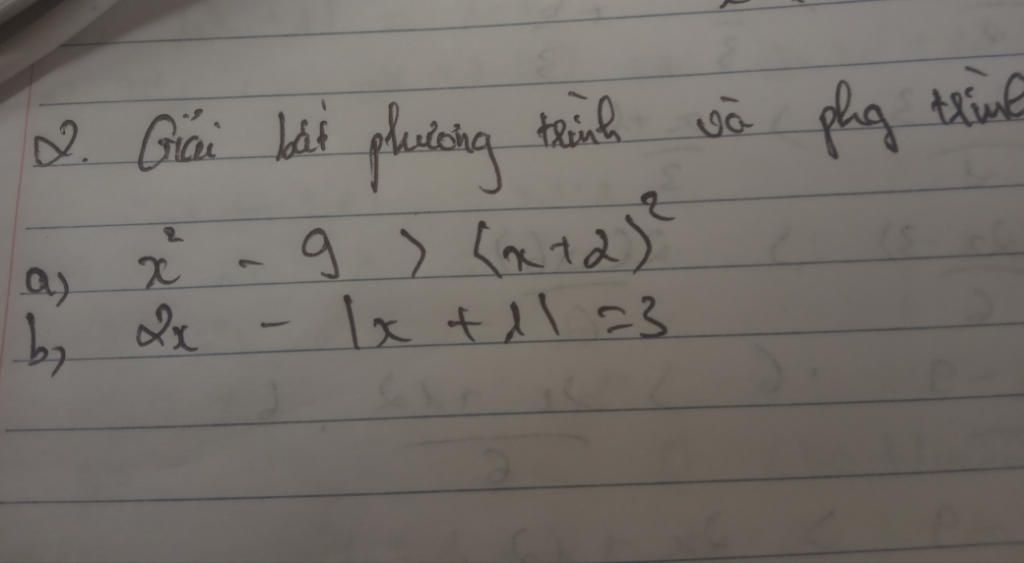 2. Giải bất phương trình và phg trình
a) x² - 9 > (x+2)²
b, 2x - |x + 1| = 3